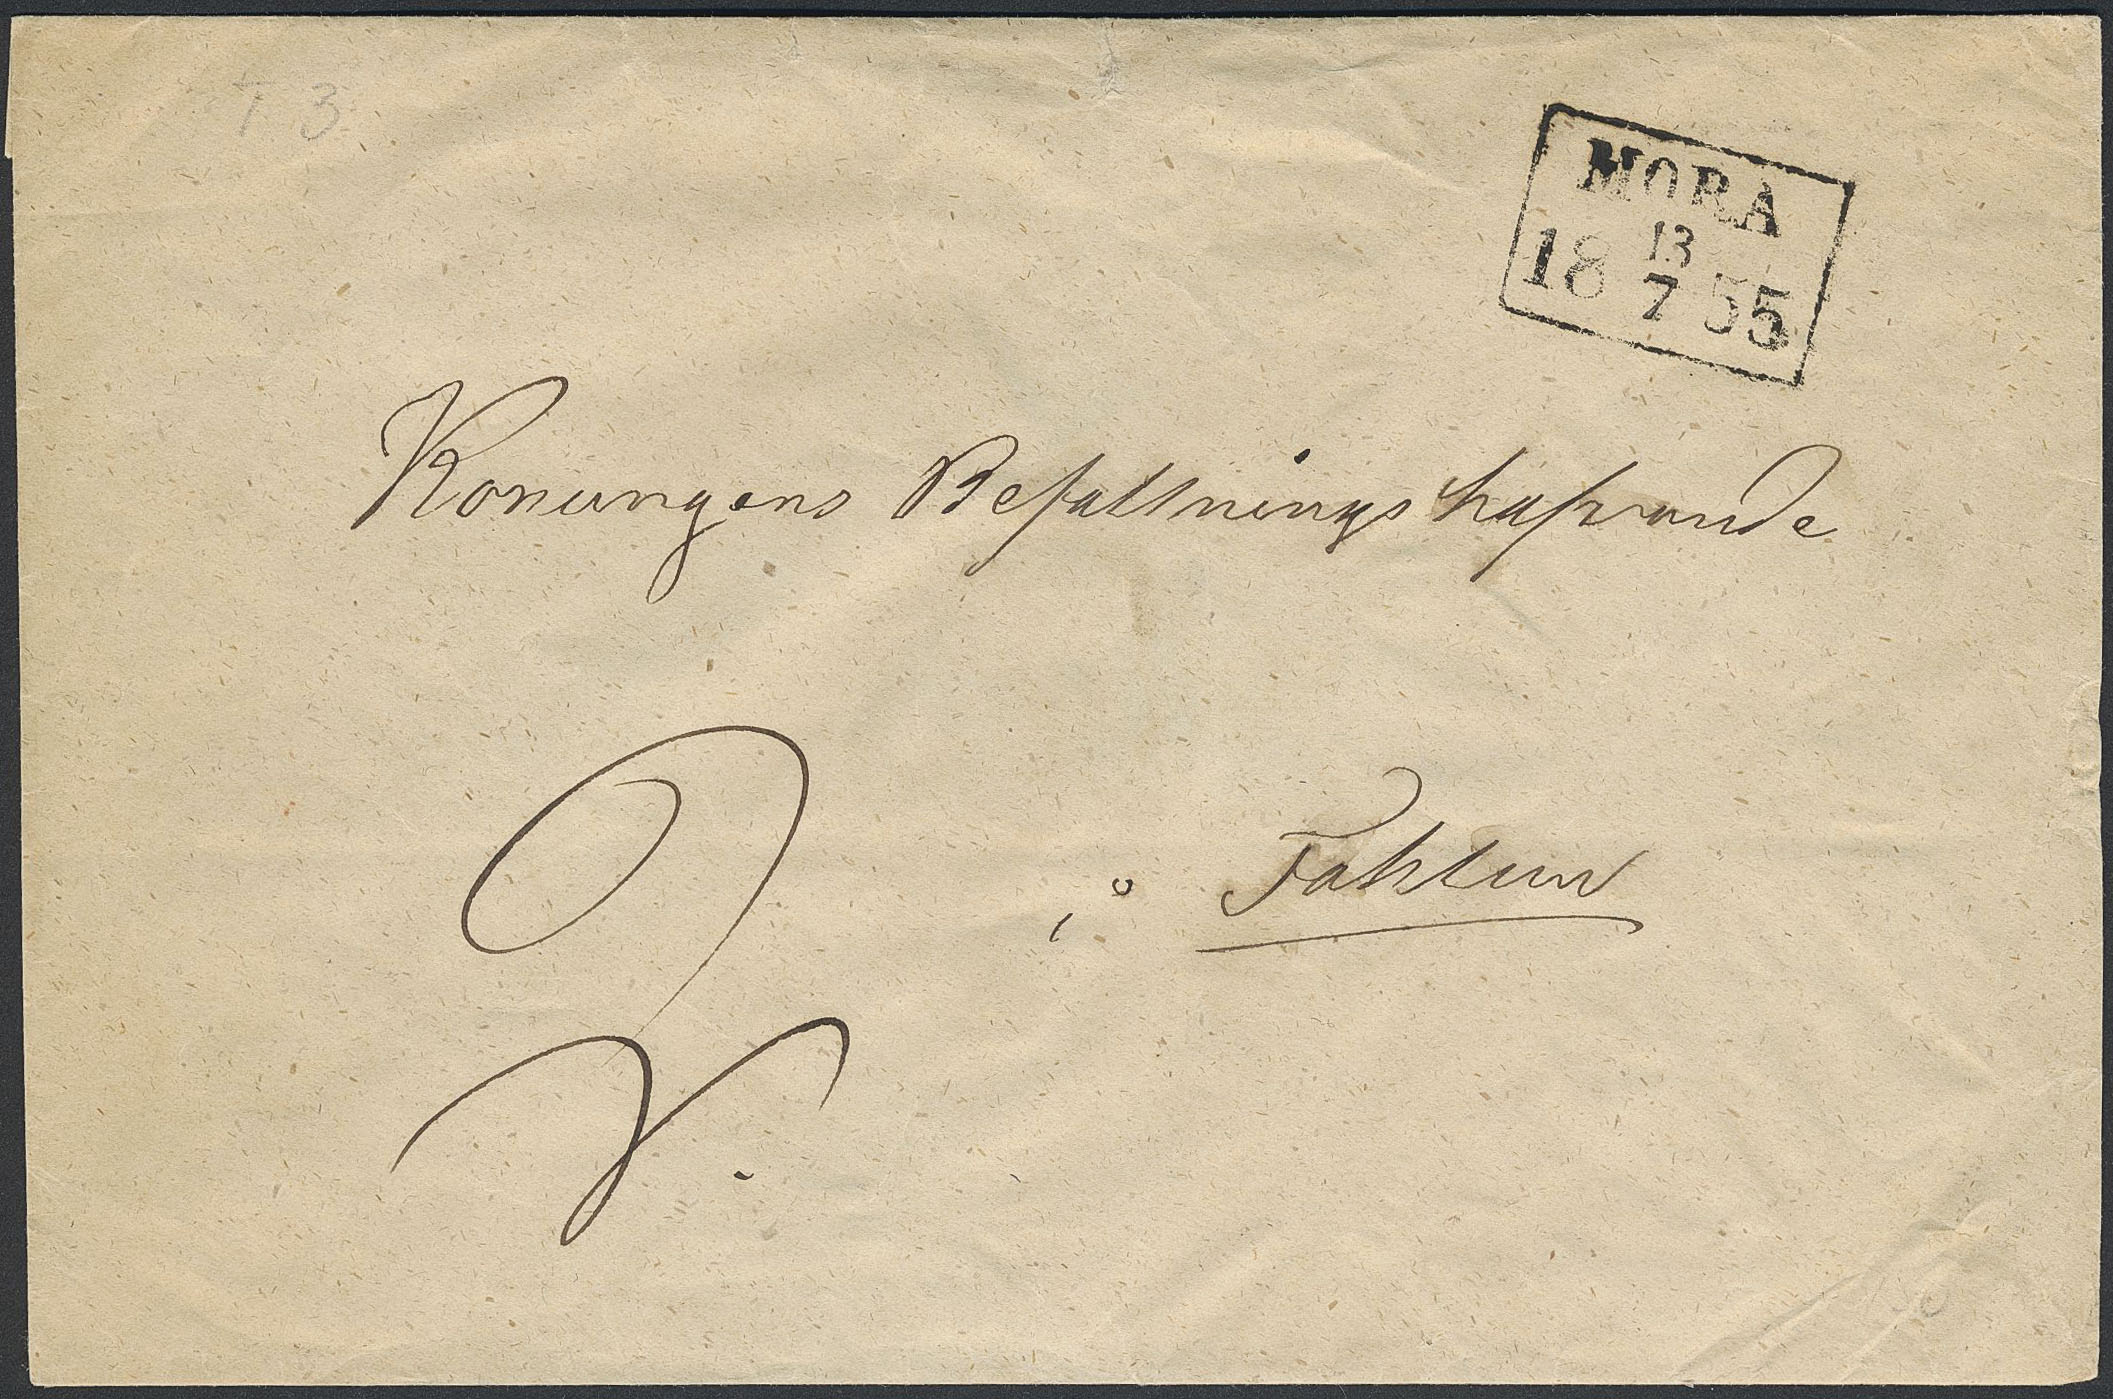 T 3
MORA
13
18 7 55
Konungens Befallningshafvande
i Fahlun